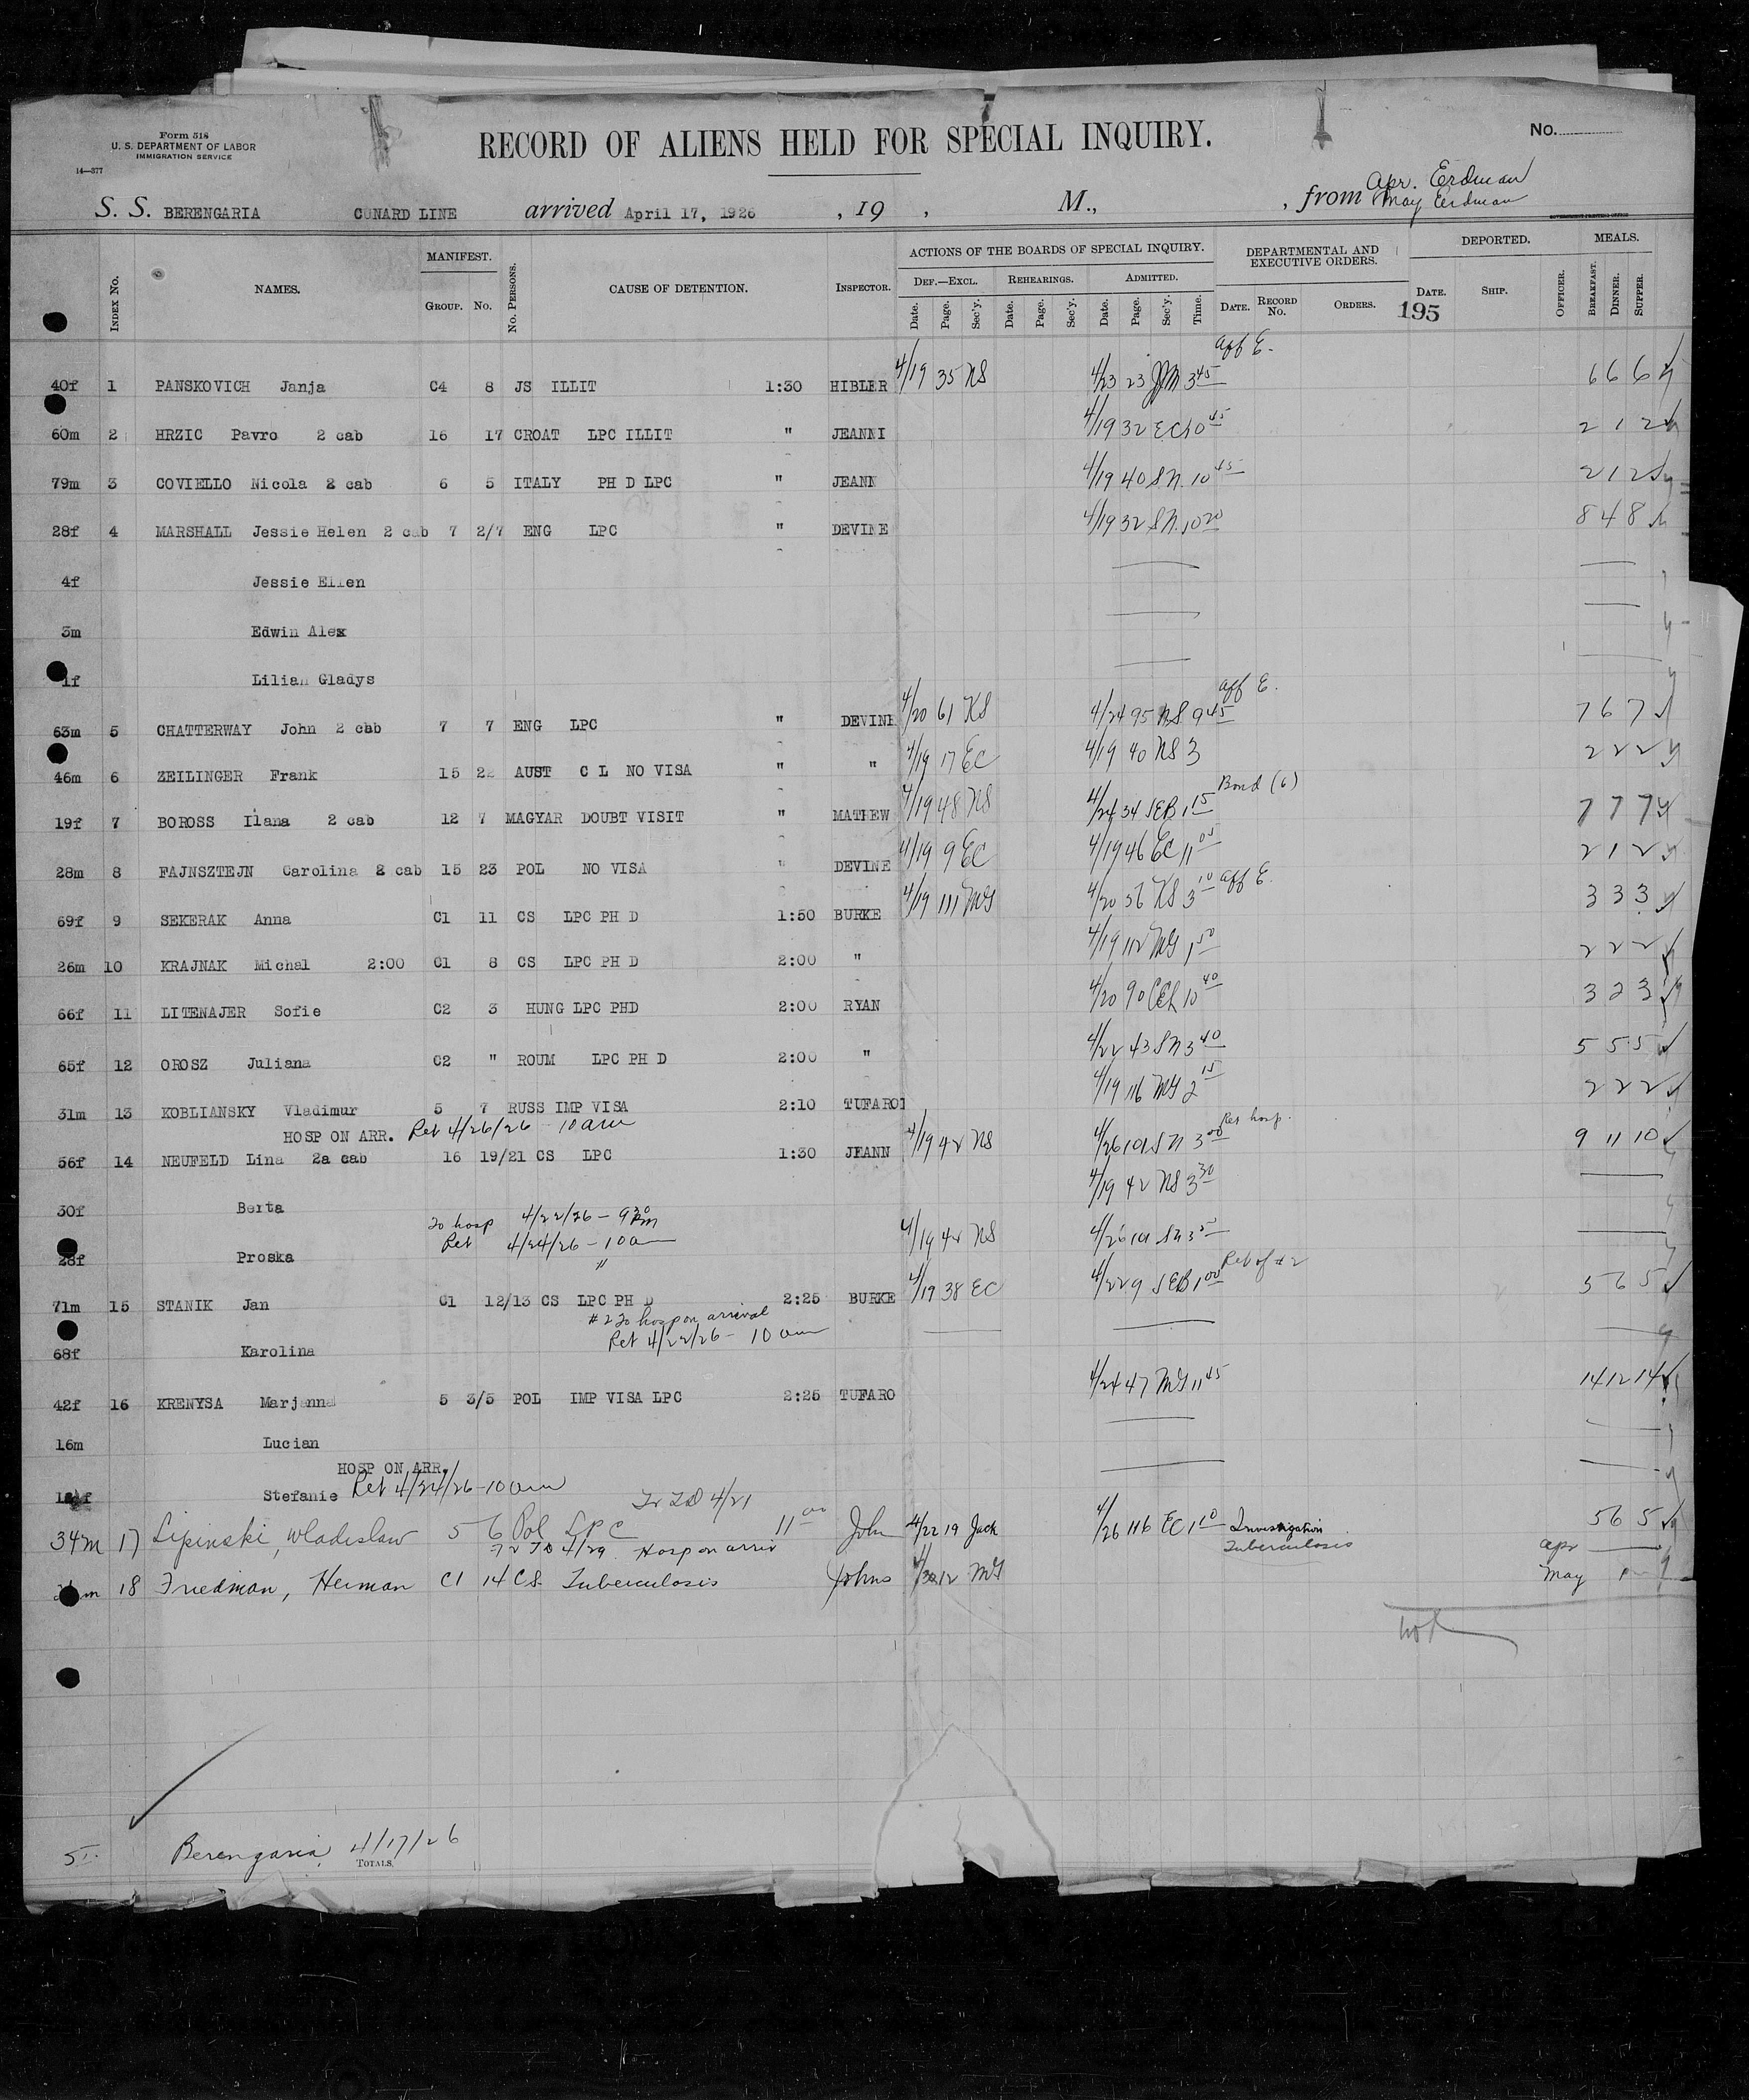 Form 518
U. S. DEPARTMENT OF LABOR
IMMIGRATION SERVICE
14—377
RECORD OF ALIENS HELD FOR SPECIAL INQUIRY.
No.
S. S. BERENGARIA CUNARD LINE arrived April 17, 1926, 19 , M., , from Apr. Erdman
May Erdman
INDEX No. NAMES. MANIFEST. GROUP. No. No. PERSONS. CAUSE OF DETENTION. INSPECTOR. ACTIONS OF THE BOARDS OF SPECIAL INQUIRY. DEF.—EXCL. REHEARINGS. ADMITTED. DEPARTMENTAL AND EXECUTIVE ORDERS. DEPORTED. MEALS.
Date. Page. Sec'y. Date. Page. Sec'y. Date. Page. Sec'y. Time. DATE. RECORD No. ORDERS. DATE. SHIP. OFFICER. BREAKFAST. DINNER. SUPPER.
195
aff E.
40f 1 PANSKOVICH Janja C4 8 JS ILLIT 1:30 HIBLER 4/19 35 NS 4/23 23 3 45 6 6 6
60m 2 HRZIC Pavro 2 cab 16 17 CROAT LPC ILLIT " JEANNI 4/19 32 10 45 2 1 2
79m 3 COVIELLO Nicola 2 cab 6 5 ITALY PH D LPC " JEANN 4/19 40 SN 10 45 2 1 2
28f 4 MARSHALL Jessie Helen 2 cab 7 2/7 ENG LPC " DEVINE 4/19 32 SN 10 20 8 4 8
4f Jessie Ellen
3m Edwin Alex
1f Lilian Gladys
aff E.
63m 5 CHATTERWAY John 2 cab 7 7 ENG LPC " DEVINE 4/20 61 KS 4/24 95 NS 9 45 7 6 7
46m 6 ZEILINGER Frank 15 22 AUST C L NO VISA " " 4/19 17 EC 4/19 40 NS 3 2 2 2
Bond (6)
19f 7 BOROSS Ilana 2 cab 12 7 MAGYAR DOUBT VISIT " MATHEW 4/19 48 NS 4/24 34 SEB 1 15 7 7 7
28m 8 FAJNSZTEJN Carolina 2 cab 15 23 POL NO VISA " DEVINE 4/19 9 EC 4/19 46 EC 11 05 2 1 2
69f 9 SEKERAK Anna C1 11 CS LPC PH D 1:50 BURKE 4/19 111 MG 4/20 56 KS 3 10 aff E. 3 3 3
26m 10 KRAJNAK Michal 2:00 C1 8 CS LPC PH D 2:00 " 4/19 112 MG 1 50 2 2 2
66f 11 LITENAJER Sofie C2 3 HUNG LPC PHD 2:00 RYAN 4/20 90 10 40 3 2 3
65f 12 OROSZ Juliana C2 " ROUM LPC PH D 2:00 " 4/22 43 SN 3 40 5 5 5
31m 13 KOBLIANSKY Vladimur 5 7 RUSS IMP VISA 2:10 TUFAROI 4/19 116 MG 2 15 2 2 2
HOSP ON ARR. Ret 4/26/26 10 am
56f 14 NEUFELD Lina 2a cab 16 19/21 CS LPC 1:30 JEANN 4/19 42 NS 4/26 101 SN 3 00 Ret hosp. 9 11 10
30f Berta 4/19 42 NS 3 30
To hosp 4/22/26 – 9 30 Pm
Ret 4/24/26 – 10 am
28f Proska " 4/19 42 NS 4/26 101 SN 3 00
71m 15 STANIK Jan C1 12/13 CS LPC PH D 2:25 BURKE 4/19 38 EC 4/22 9 SEB 1 00 Ret of #2 5 6 5
#2 To hosp on arrival
Ret 4/22/26 – 10 am
68f Karolina
42f 16 KRENYSA Marjanna 5 3/5 POL IMP VISA LPC 2:25 TUFARO 4/24 47 MG 11 45 14 12 14
16m Lucian
HOSP ON ARR.
Stefanie Ret 4/24/26 – 10 am
Tr TD 4/21
34m 17 Lipinski, Wladislaw 5 6 Pol LPC 11 00 John 4/22 19 Jack 4/26 116 EC 1 10 Investigation 5 6 5
Tr TD 4/29 Hosp on arriv Tuberculosis apr
m 18 Friedman, Herman C1 14 CS. Tuberculosis Johns 4/30 12 MG May 1
5
Berengaria 4/17/26
TOTALS.